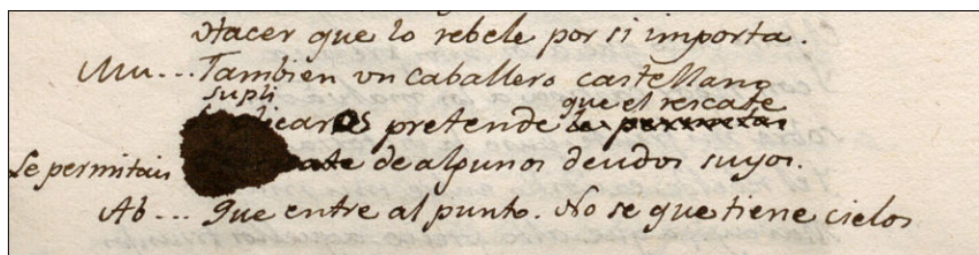 Hacer que lo rebele por si importa.
Mu... Tambien vn caballero castellano
supli que el rescate
licaros pretende le permitas
Le permitais ate de algunos deudos suyos.
Ab... Que entre al punto. No se que tiene cielos